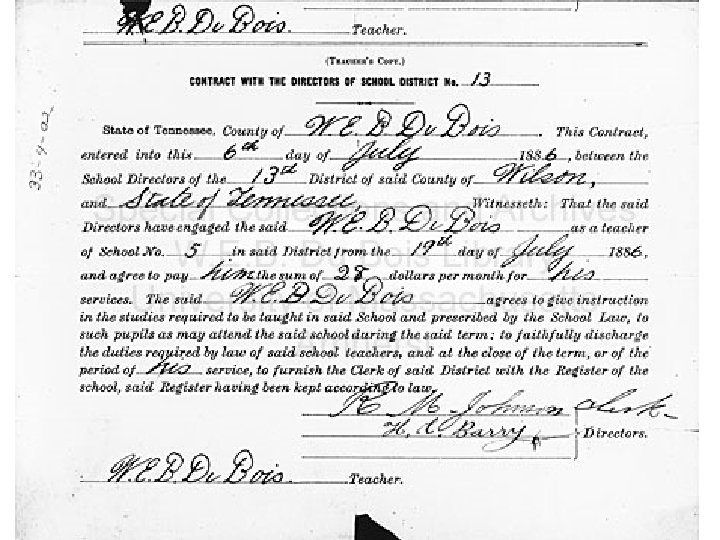 W.E.B. Du Bois. Teacher.
(Teacher's Copy.)
CONTRACT WITH THE DIRECTORS OF SCHOOL DISTRICT No. 13
State of Tennessee, County of W. E. B. Du Bois. This Contract,
entered into this 6th day of July 1886, between the
School Directors of the 13th District of said County of Wilson,
and State of Tennessee, Witnesseth: That the said
Directors have engaged the said W.E.B. Du Bois as a teacher
of School No. 5 in said District from the 19th day of July 1886,
and agree to pay him the sum of 28 dollars per month for his
services. The said W.E.B. Du Bois agrees to give instruction
in the studies required to be taught in said School and prescribed by the School Law, to
such pupils as may attend the said school during the said term; to faithfully discharge
the duties required by law of said school teachers, and at the close of the term, or of the
period of his service, to furnish the Clerk of said District with the Register of the
school, said Register having been kept according to law.
R M Johnson Clerk
H. C. Barry Directors.
W.E.B. Du Bois. Teacher.
Special Collections and Archives
W.E.B. Du Bois Library
University of Massachusetts